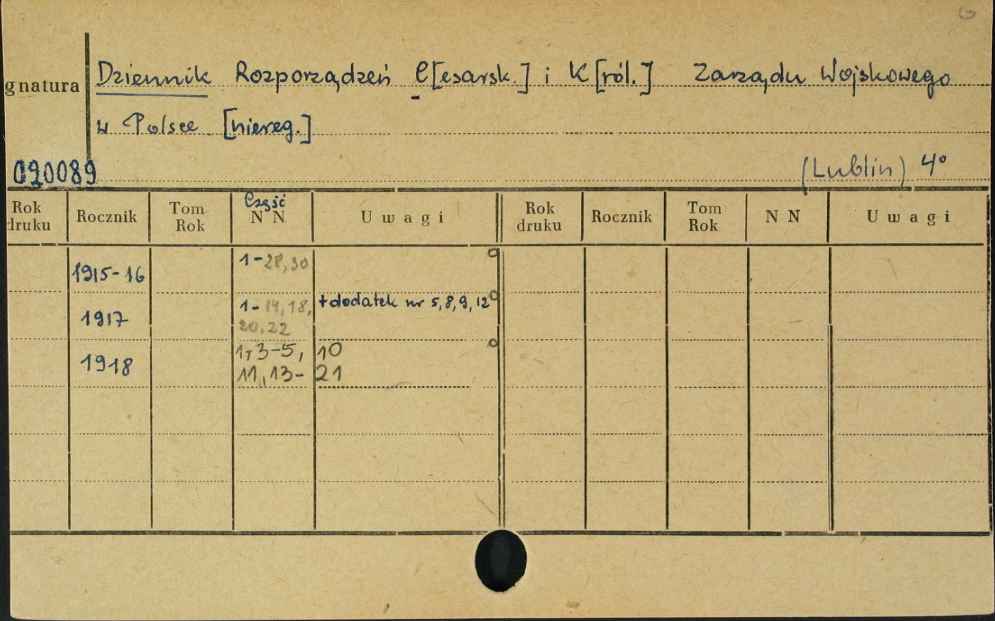 gnatura
Dziennik Rozporządzeń C[esarsk.] i K[ról.] Zarządu Wojskowego
w Polsce [niereg.]
020089
(Lublin) 4°
Rok druku Rocznik Tom Rok Część NN Uwagi Rok druku Rocznik Tom Rok NN Uwagi
1915-16 1-28,30
1917 1-14,18, +dodatek nr 5,8,9,12
20,22
1918 1,3-5, 10
11,13-21